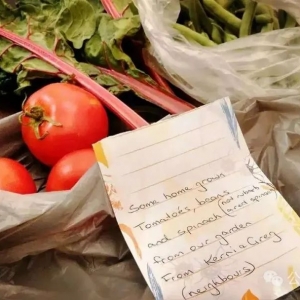 Some home grown
Tomatoes, beans
and spinach (not rhubarb
from our garden
From Kerrie & Greg
(neighbours)